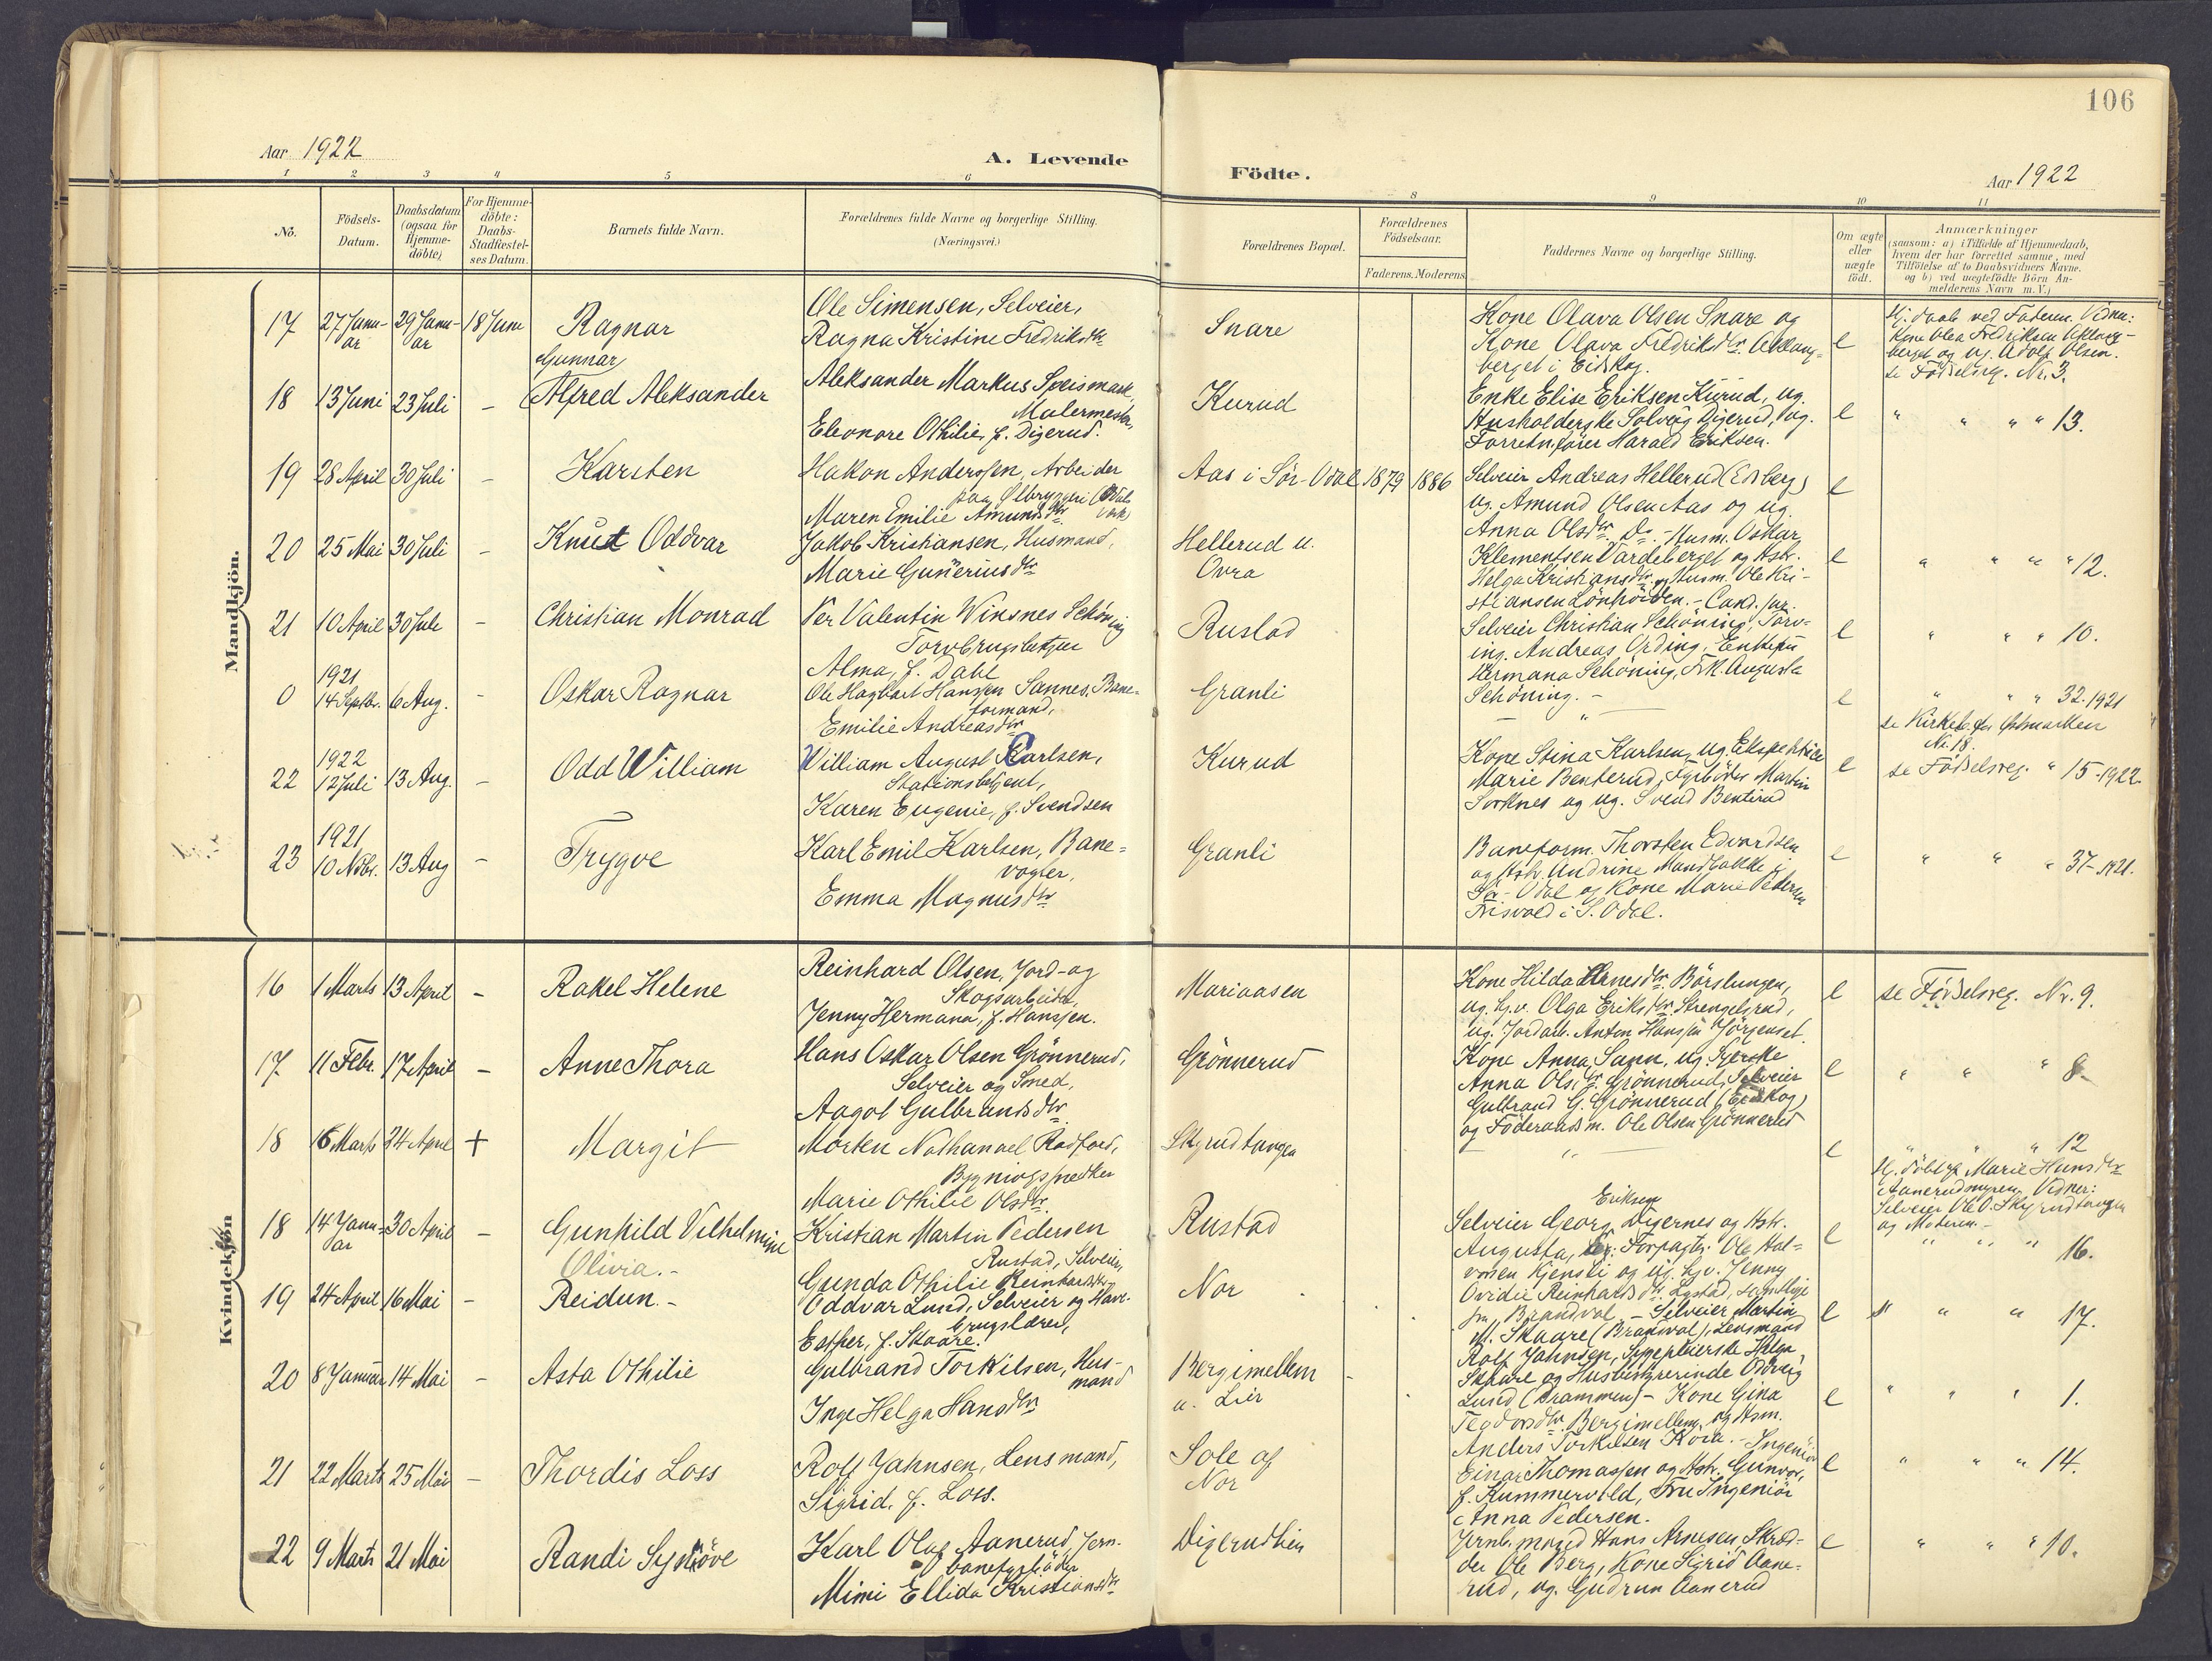 106
Aar 1922
A. Levende
Födte.
Aar 1922
1 2 3 4 5 6 8 9 10 11
No.
Födsels-
Datum.
Daabsdatum
(ogsaa for
Hjemme-
döbte)
For Hjemme-
döbte:
Daabs-
Stadfæstel-
ses Datum.
Barnets fulde Navn.
Forældrenes fulde Navne og borgerlige Stilling.
(Næringsvei.)
Forældrenes Bopæl.
Forældrenes
Födselsaar.
Faderens. Moderens.
Faddernes Navne og borgerlige Stilling.
Om ægte
eller
uægte
födt.
Anmærkninger
(saasom: a) i Tilfælde af Hjemmedaab,
hvem der har forrettet samme, med
Tilföielse af to Daabsvidners Navne.
og b) ved uægtefödte Börn An-
melderens Navn m. V.)
Mandkjön.
17 27 Janu-
ar 29 Janu-
ar 18 Juni Ragnar
Gunnar
Ole Simensen, Selveier,
Ragna Kristine Fredriksdtr
Snare
Kone Olava Olsen Snare og
Kone Olava Fredriksdtr.
berget i Eidskog.
e
Hj. daab ved Faderen. Vidner:
Kone Olea Fredriksen
berget og ug. Adolf Olsen.
se Födselsreg. Nr. 3.
18 13 Juni 23 Juli - Alfred Aleksander
Aleksander Markus Speismark,
Malermester,
Eleonore Othilie, f. Digerud.
Kurud
Enke Elise Eriksen Kurud, ug.
Husholderske Solveig Digerud, ug.
Forretn.förer Harald Eriksen.
e
" " " " 13.
19 28 April 30 Juli - Karsten
Hakon Anderssen, Arbeider
paa Ølbryggeri
Maren Emilie Amundsdtr.
Aas i Sør-Odal 1879 1886
Selveier Andreas Hellerud (Eidsberg)
ug. Amund Olsen Aas og ug.
Anna Olsdtr. Do. - Husm. Oskar
e
20 25 Mai 30 Juli - Knut Oddvar
Jakob Kristiansen, Husmand,
Marie Gunneriusdtr
Hellerud u.
Ovra
Klementsen Vardeberget og Hstr.
Helga Kristiansdtr. og Husm. Ole Kri-
stiansen Lönhöiden. - Cand. jur.
e
" " " " 12.
21 10 April 30 Juli - Christian Monrad
Per Valentin Winsnes Schöning
Torvbrugsbestyrer
Alma, f. Dahl
Rustad
Selveier Christian Schöning, Torv-
ing. Andreas Ording, Enkefru
Hermana Schöning, Frk. Augusta
Schöning. -
e
" " " 10.
1921
0 14 Septbr. 6 Aug. - Oskar Ragnar
Ole Hagbart Hanssen Sannes, Bane-
formand,
Emilie Andreasdtr
Granli
"
e
" " " 32-1921
se Kirkeb. for Østmarken
Nr. 18.
1922
22 12 Juli 13 Aug. - Odd William
William August Carlsen,
Stationsbetjent,
Karen Eugenie, f. Svendsen
Kurud
Kone Stina Karlsen, ug. Ekspeditrice
Marie Benterud, Fyrböder Martin
Sorknes og ug. Svend Benterud
e
se Födselsreg. " 15-1922.
1921
23 10 Novbr. 13 Aug - Trygve
Karl Emil Karlsen, Bane-
vogter,
Emma Magnusdtr
Granli
Baneform. Thorsten Edvardsen
og Hstr. Andrine Mandbakke i
Sör-Odal og Kone Marie Pedersen
Frisvold i S. Odal.
e
" " " 37-1921.
Kvindekjön
16 1 Marts 13 April - Rakel Helene
Reinhard Olsen, Jord- og
Skogsarbeider,
Jenny Hermana, f. Hanssen.
Mariaasen
Kone Hilda Arnesdtr. Börslungen,
ug. hj.v. Olga Eriksdtr. Strengelsrud,
ug. Jordarb. Anton Hanssen Jörgenset.
e
se Födselsreg. Nr. 9.
17 11 Febr. 17 April - Anne Thora
Hans Oskar Olsen Grönnerud,
Selveier og Smed,
Aagot Gulbrandsdtr.
Grönnerud
Kone Anna Sann, ug. Syerske
Anna Olsdtr. Grönnerud, Selveier
Gulbrand G. Grönnerud (Eidskog)
og Föderaadsm. Ole Olsen Grönnerud
e
" " " 8.
18 16 Marts 24 April + Margit
Morten Nathanael Rodfoss,
Bygningssnedker
Marie Othilie Olsdtr.
Skyrudtangen
"
e
" " " 12
Hj. döbt af Marie Hansdtr
Aanerudmyren, Vidner:
Selveier Ole O. Skyrudtangen
og Moderen. -
18 14 Janu-
ar 30 April - Gunhild Vilhelmine
Olivia. -
Kristian Martin Pedersen
Rustad, Selveier,
Gunda Othilie Reinhardsdtr
Rustad
Eriksen
Selveier Georg Digernes og Hstr.
Augusta, Forpagter Ole Hal-
vorsen Kjensli og ug. hj.v. Jenny
Ovidie Reinhardsdtr. Lystad, samtlige
fra Brandval. - Selveier Martin
e
" " " 16.
19 24 April 16 Mai - Reidun. -
Oddvar Lund, Selveier og Have-
brugslærer,
Esther, f. Skaare.
Nor
M. Skaare (Brandval), Lensmand
Rolf Jahnsen, Sygepleierske Helga
Skaare og Husbestyrerinde Oddveig
Lund (Drammen) - Kone Gina
e
" " " 17.
20 8 Januar 14 Mai - Asta Othilie
Gulbrand Torkilsen, Hus-
mand
Inge Helga Hansdtr
Bergimellem
u. Lier
Teodorsdtr. Bergimellem, og Hsm.
Anders Torkilsen Kora. - Ingeniör
e
" " " 1.
21 22 Marts 25 Mai - Thordis Loss
Rolf Jahnsen, Lensmand,
Sigrid, f. Loss.
Sole af
Nor
Einar Thomassen og Hstr. Gunvor,
f. Kummervold, Fru Ingeniör
Anna Pedersen.
e
" " " 14.
22 9 Marts 21 Mai Randi Synnöve
Karl Olaf Aanerud, Jern-
banefyrböder
Mimi Ellida Kristiansdtr
Digerudlien
Jernb.mand Hans Arnesen Skred-
der Ole Berg, Kone Sigrid Aane-
rud, ug. Gudrun Aanerud
e
" " " 10.